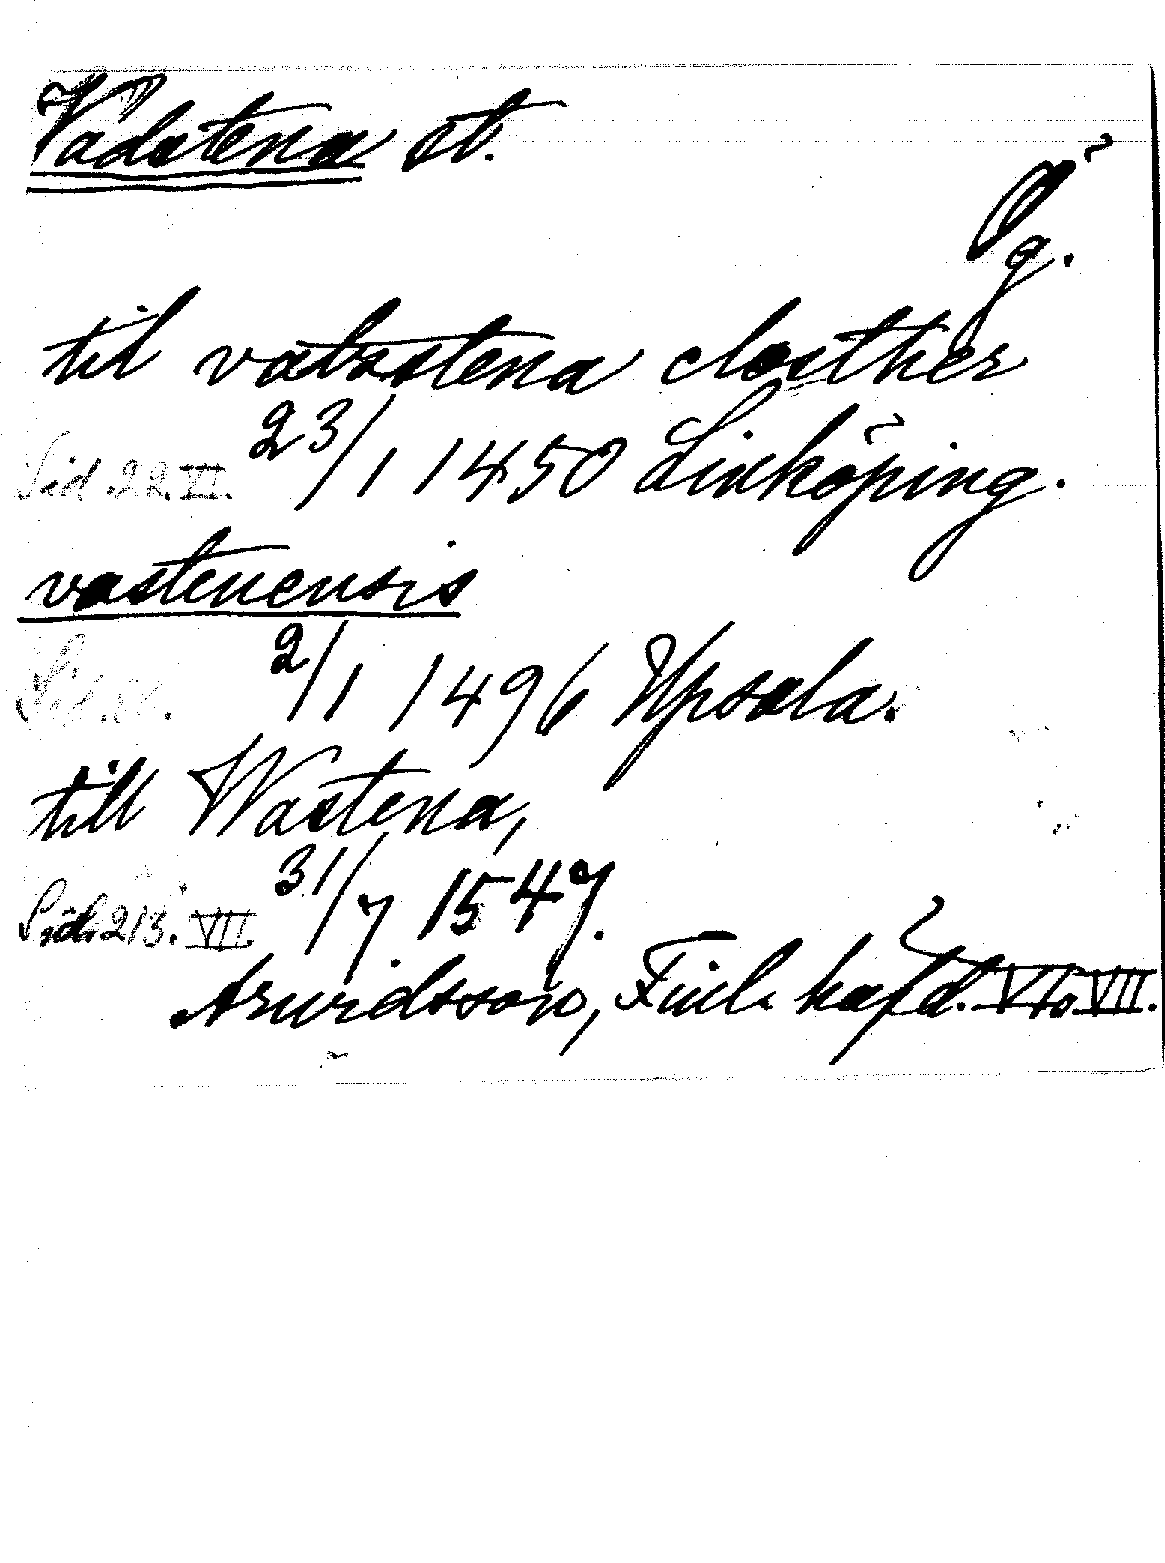 Vadstena st.
Ög.
til vatzstena closther
Sid. 22. VI. 23/1 1450 Linköping.
vastenensis
Sid. 2/1 1496 Upsala.
till Wastena,
Sid. 213. VII. 31/7 1547.
Arwidsson, Finl. häfd. VI o. VII.